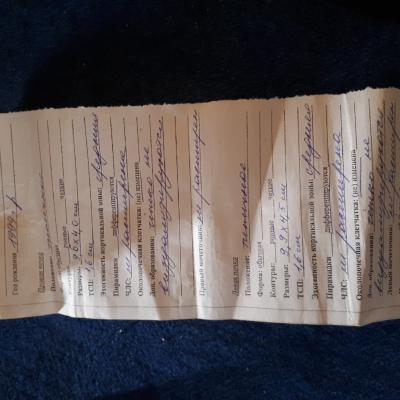 Год рождения 1984 г.
Правая почка
Положение:
ровные четкие
Размеры: 9,6 х 4,0 см
ТСП: 1,6 см
Эхогенность кортикальной зоны: средняя
Пирамидки дифференцируются
ЧЛС: не расширена
Околопочечная клетчатка: (не) изменена
Доп. образования: четко не
визуализируются
Правый мочеточник: не расширен
Левая почка
Положение: типичное
Форма: обычная
Контуры: ровные четкие
Размеры: 9,9 х 4,2 см
ТСП: 1,6 см
Эхогенность кортикальной зоны: средняя
Пирамидки дифференцируются
ЧЛС: не расширена
Околопочечная клетчатка: (не) изменена
Доп. образования: четко не
Левый мочеточник: